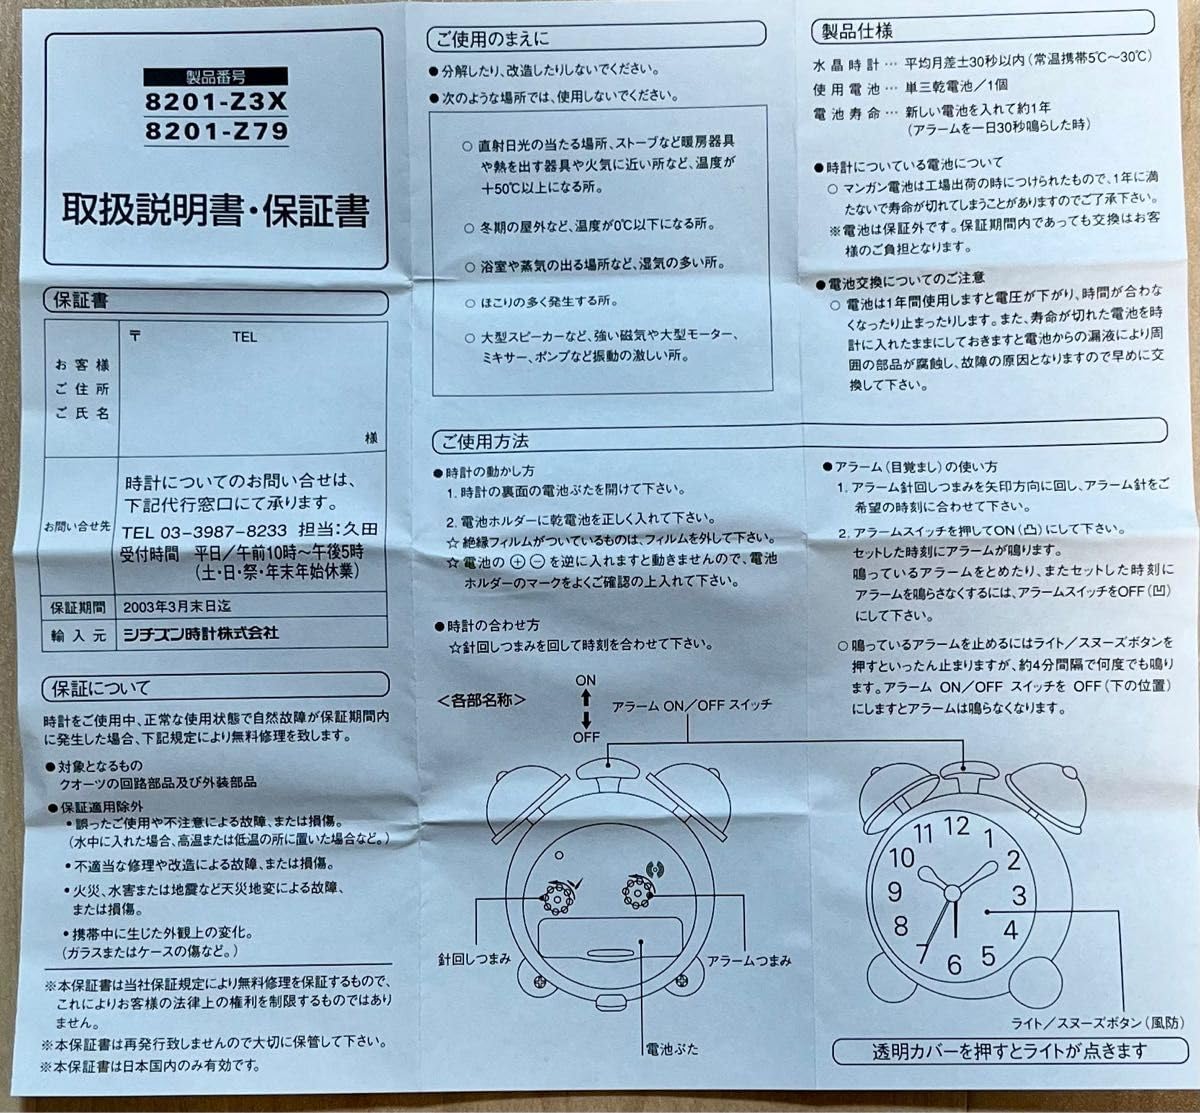 製品番号
8201-Z3X
8201-Z79
取扱説明書・保証書
保証書
お客様
ご住所
ご氏名
〒 TEL
様
お問い合せ先
時計についてのお問い合せは、
下記代行窓口にて承ります。
TEL 03-3987-8233 担当:久田
受付時間 平日/午前10時〜午後5時
(土・日・祭・年末年始休業)
保証期間 2003年3月末日迄
輸入元 シチズン時計株式会社
保証について
時計をご使用中、正常な使用状態で自然故障が保証期間内
に発生した場合、下記規定により無料修理を致します。
●対象となるもの
クオーツの回路部品及び外装部品
●保証適用除外
・誤ったご使用や不注意による故障、または損傷。
(水中に入れた場合、高温または低温の所に置いた場合など。)
・不適当な修理や改造による故障、または損傷。
・火災、水害または地震など天災地変による故障、
または損傷。
・携帯中に生じた外観上の変化。
(ガラスまたはケースの傷など。)
※本保証書は当社保証規定により無料修理を保証するもので、
これによりお客様の法律上の権利を制限するものではあり
ません。
※本保証書は再発行致しませんので大切に保管して下さい。
※本保証書は日本国内のみ有効です。
ご使用のまえに
●分解したり、改造したりしないでください。
●次のような場所では、使用しないでください。
○ 直射日光の当たる場所、ストーブなど暖房器具
や熱を出す器具や火気に近い所など、温度が
+50℃以上になる所。
○ 冬期の屋外など、温度が0℃以下になる所。
○ 浴室や蒸気の出る場所など、湿気の多い所。
○ ほこりの多く発生する所。
○ 大型スピーカーなど、強い磁気や大型モーター、
ミキサー、ポンプなど振動の激しい所。
製品仕様
水晶時計… 平均月差±30秒以内(常温携帯5℃〜30℃)
使用電池… 単三乾電池/1個
電池寿命… 新しい電池を入れて約1年
(アラームを一日30秒鳴らした時)
●時計についている電池について
○ マンガン電池は工場出荷の時につけられたもので、1年に満
たないで寿命が切れてしまうことがありますのでご了承下さい。
※電池は保証外です。保証期間内であっても交換はお客
様のご負担となります。
●電池交換についてのご注意
○ 電池は1年間使用しますと電圧が下がり、時間が合わな
くなったり止まったりします。また、寿命が切れた電池を時
計に入れたままにしておきますと電池からの漏液により周
囲の部品が腐蝕し、故障の原因となりますので早めに交
換して下さい。
ご使用方法
●時計の動かし方
1. 時計の裏面の電池ぶたを開けて下さい。
2. 電池ホルダーに乾電池を正しく入れて下さい。
☆ 絶縁フィルムがついているものは、フィルムを外して下さい。
☆ 電池の ⊕ ⊖ を逆に入れますと動きませんので、電池
ホルダーのマークをよくご確認の上入れて下さい。
●時計の合わせ方
☆針回しつまみを回して時刻を合わせて下さい。
●アラーム(目覚まし)の使い方
1. アラーム針回しつまみを矢印方向に回し、アラーム針をご
希望の時刻に合わせて下さい。
2. アラームスイッチを押してON(凸)にして下さい。
セットした時刻にアラームが鳴ります。
鳴っているアラームをとめたり、またセットした時刻に
アラームを鳴らさなくするには、アラームスイッチをOFF(凹)
にして下さい。
○ 鳴っているアラームを止めるにはライト/スヌーズボタンを
押すといったん止まりますが、約4分間隔で何度でも鳴り
ます。アラーム ON/OFF スイッチを OFF(下の位置)
にしますとアラームは鳴らなくなります。
<各部名称>
ON
OFF
アラーム ON/OFF スイッチ
針回しつまみ
アラームつまみ
電池ぶた
12
1
2
3
4
5
6
7
8
9
10
11
ライト/スヌーズボタン(風防)
透明カバーを押すとライトが点きます